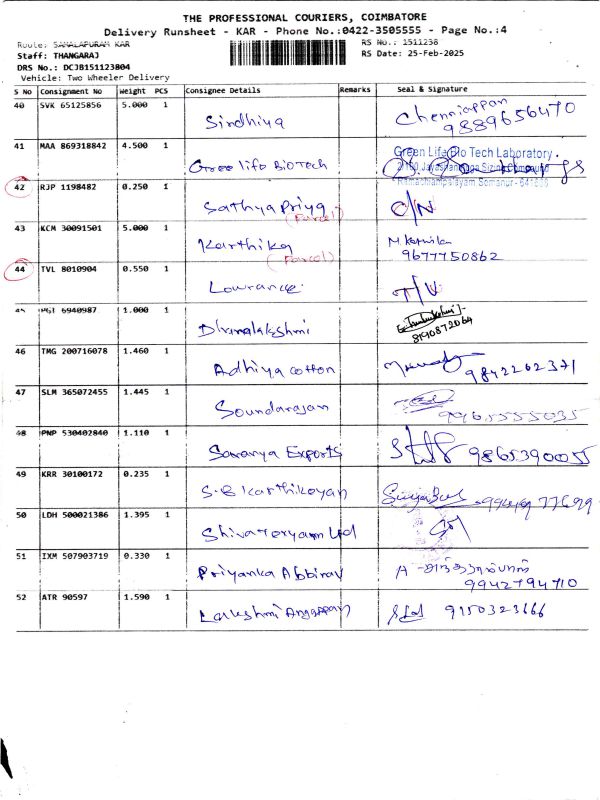 THE PROFESSIONAL COURIERS, COIMBATORE
Delivery Runsheet - KAR - Phone No.:0422-3505555 - Page No.:4
Route: SAMALAPURAM KAR
RS No.: 1511238
Staff: THANGARAJ
RS Date: 25-Feb-2025
DRS No.: DCJB151123804
Vehicle: Two Wheeler Delivery
S No Consignment No Weight PCS Consignee Details Remarks Seal & Signature
40 SVK 65125856 5.000 1 Sindhiya Chenniappan
9889656470
41 MAA 869318842 4.500 1 Green life BioTech Green Life Bio Tech Laboratory
Somanur - 641668
42 RJP 1198482 0.250 1 Sathya Priya C/N
(Parcel)
43 KCM 30091501 5.000 1 Karthika M. Karthika
(Parcel) 9677750862
44 TVL 8010904 0.550 1 Lowrance T/V
45 PGT 6940987 1.000 1 Dhanalakshmi
8190872064
46 TMG 200716078 1.460 1 Adhiya cotton 9842262371
47 SLM 365072455 1.445 1 Soundarajan 9965555035
48 PNP 530402840 1.110 1 Saranya Exports 9865390055
49 KRR 30100172 0.235 1 S.B Karthikeyan
50 LDH 500021386 1.395 1 Ltd
51 IXM 507903719 0.330 1 Priyanka A
9942794710
52 ATR 90597 1.590 1 Lakshmi Angappan 9150323666